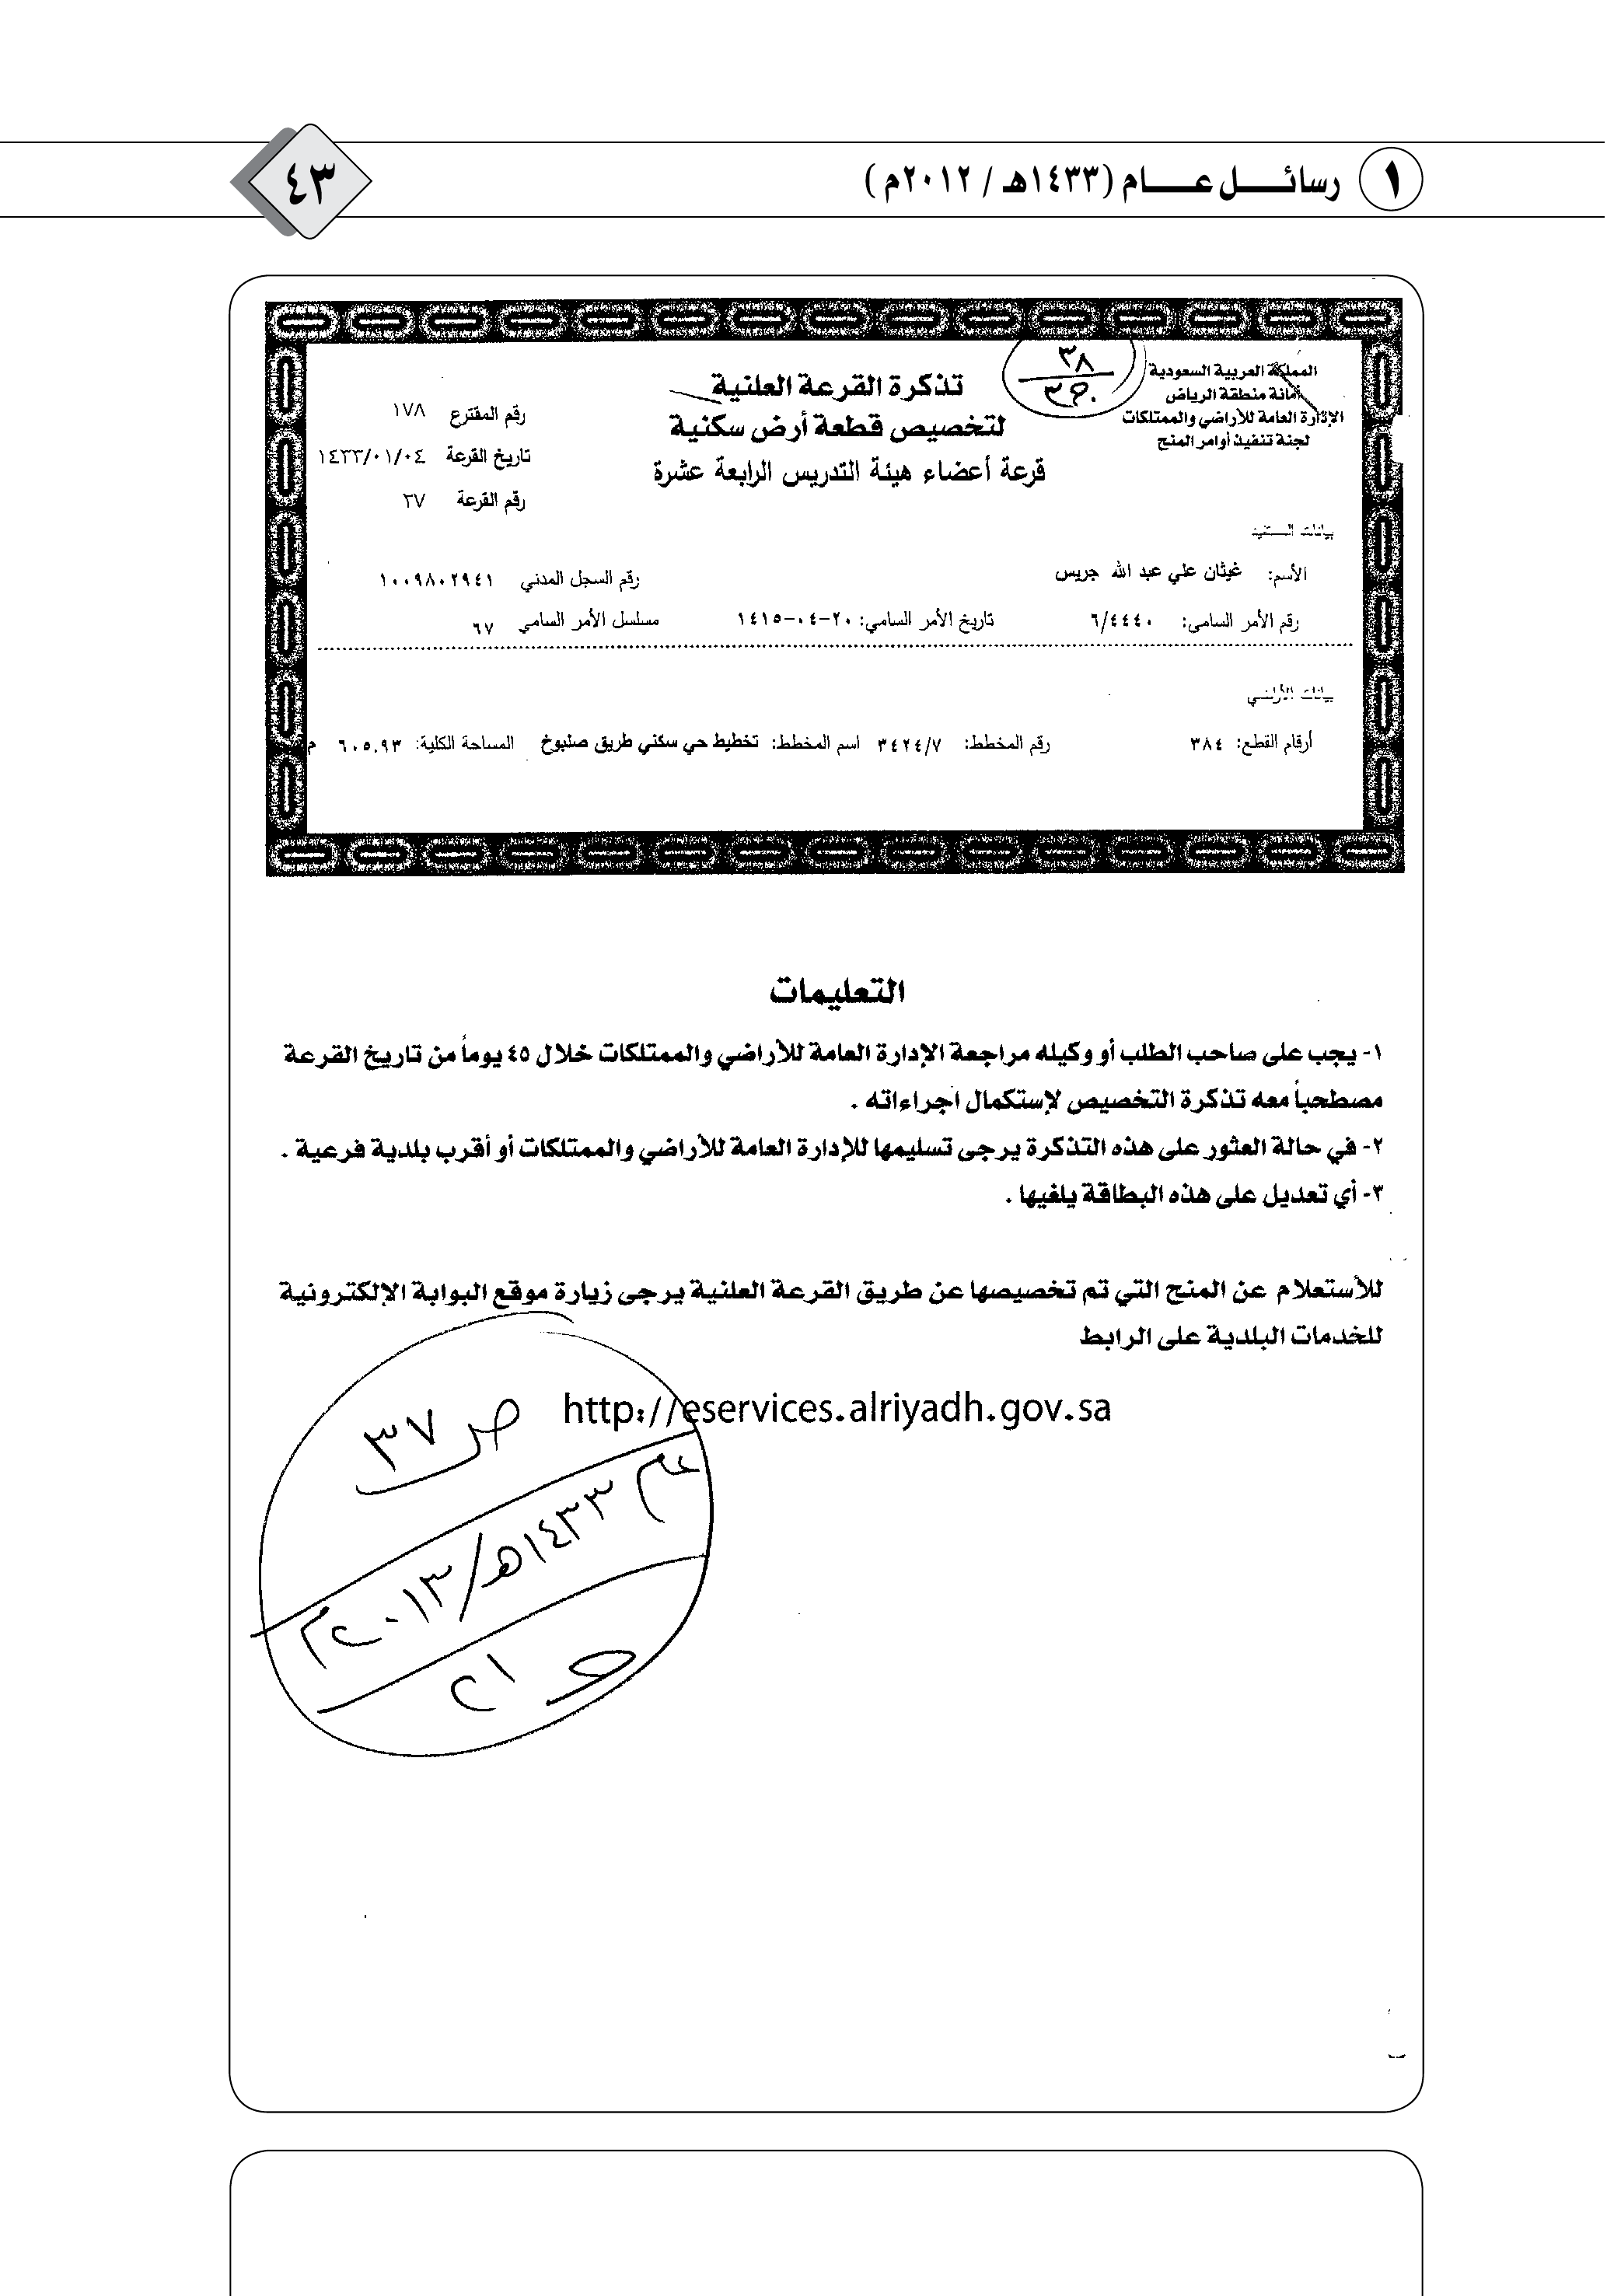 ١ رسائـــــل عـــــام (١٤٣٣هـ / ٢٠١٢م )
٤٣
المملكة العربية السعودية
أمانة منطقة الرياض
الإدارة العامة للأراضي والممتلكات
لجنة تنفيذ أوامر المنح
٣٨
ج٣
تذكرة القرعة العلنية
لتخصيص قطعة أرض سكنية
قرعة أعضاء هيئة التدريس الرابعة عشرة
رقم المقترع ١٧٨
تاريخ القرعة ١٤٣٣/٠١/٠٤
رقم القرعة ٣٧
بيانات المستفيد
الأسم: غيثان علي عبد الله جريس رقم السجل المدني ١٠٠٩٨٠٢٩٤١
رقم الأمر السامى: ٦/٤٤٤٠ تاريخ الأمر السامي: ٢٠-٠٤-١٤١٥ مسلسل الأمر السامي ٦٧
بيانات الأراضي
أرقام القطع: ٣٨٤ رقم المخطط: ٣٤٢٤/٧ اسم المخطط: تخطيط حي سكني طريق صلبوخ المساحة الكلية: ٦٠٥.٩٣ م
التعليمات
١- يجب على صاحب الطلب أو وكيله مراجعة الإدارة العامة للأراضي والممتلكات خلال ٤٥ يوماً من تاريخ القرعة
مصطحباً معه تذكرة التخصيص لإستكمال اجراءاته .
٢- في حالة العثور على هذه التذكرة يرجى تسليمها للإدارة العامة للأراضي والممتلكات أو أقرب بلدية فرعية .
٣- أي تعديل على هذه البطاقة يلغيها .
للأستعلام عن المنح التي تم تخصيصها عن طريق القرعة العلنية يرجى زيارة موقع البوابة الإلكترونية
للخدمات البلدية على الرابط
http://eservices.alriyadh.gov.sa
ص ٣٧
عام ١٤٣٣هـ/٢٠١٣م
حـ ٢١